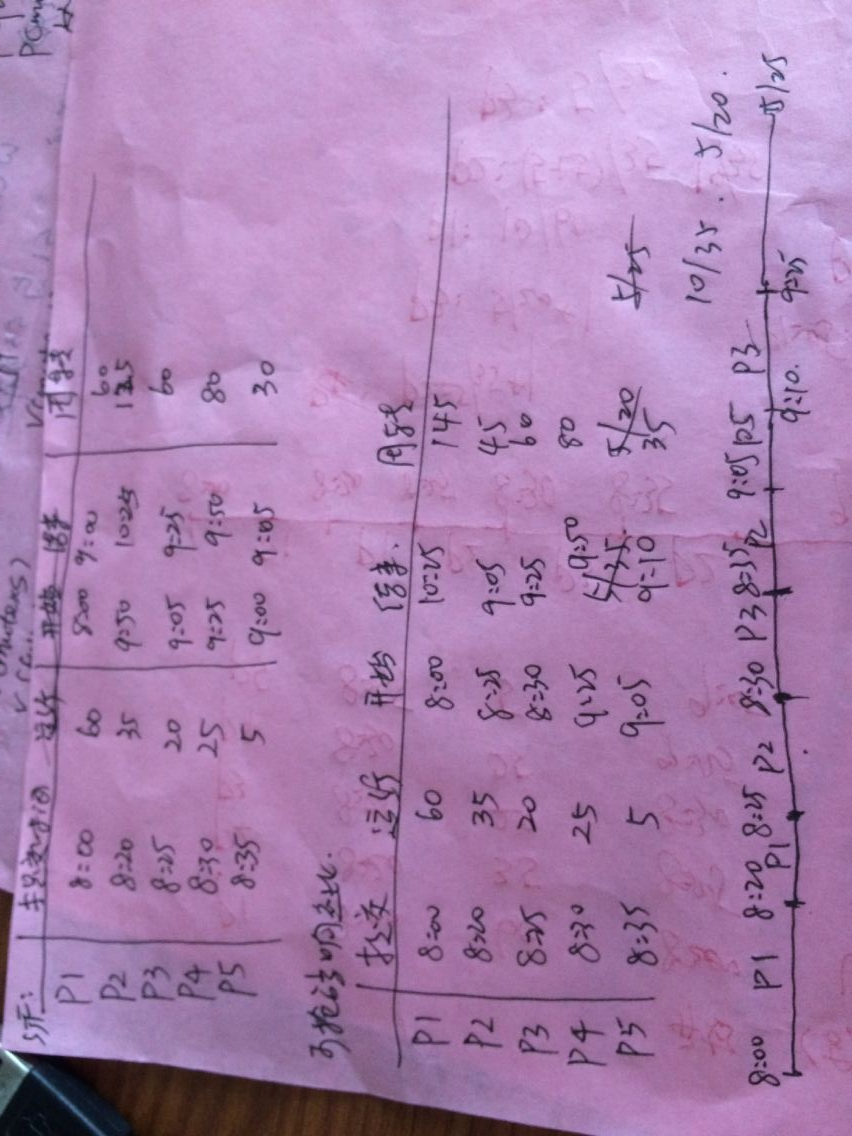 SJF:
提交时间 运行 开始 结束 周转
P1 8:00 60 8:00 9:00 60
P2 8:20 35 9:50 10:25 125
P3 8:25 20 9:05 9:25 60
P4 8:30 25 9:25 9:50 80
P5 8:35 5 9:00 9:05 30
可抢占响应比
提交 运行 开始 结束. 周转
P1 8:00 60 8:00 10:25 145
P2 8:20 35 8:25 9:05 45
P3 8:25 20 8:30 9:25 60
P4 8:30 25 9:25 9:50 80
5/25 5/20 5/25
P5 8:35 5 9:05 9:10 35
10/35. 5/20.
8:00 P1 8:20 P1 8:25 P2 8:30 P3 8:35 P2 9:05 P5 P3 5/25
9:10. 9:25